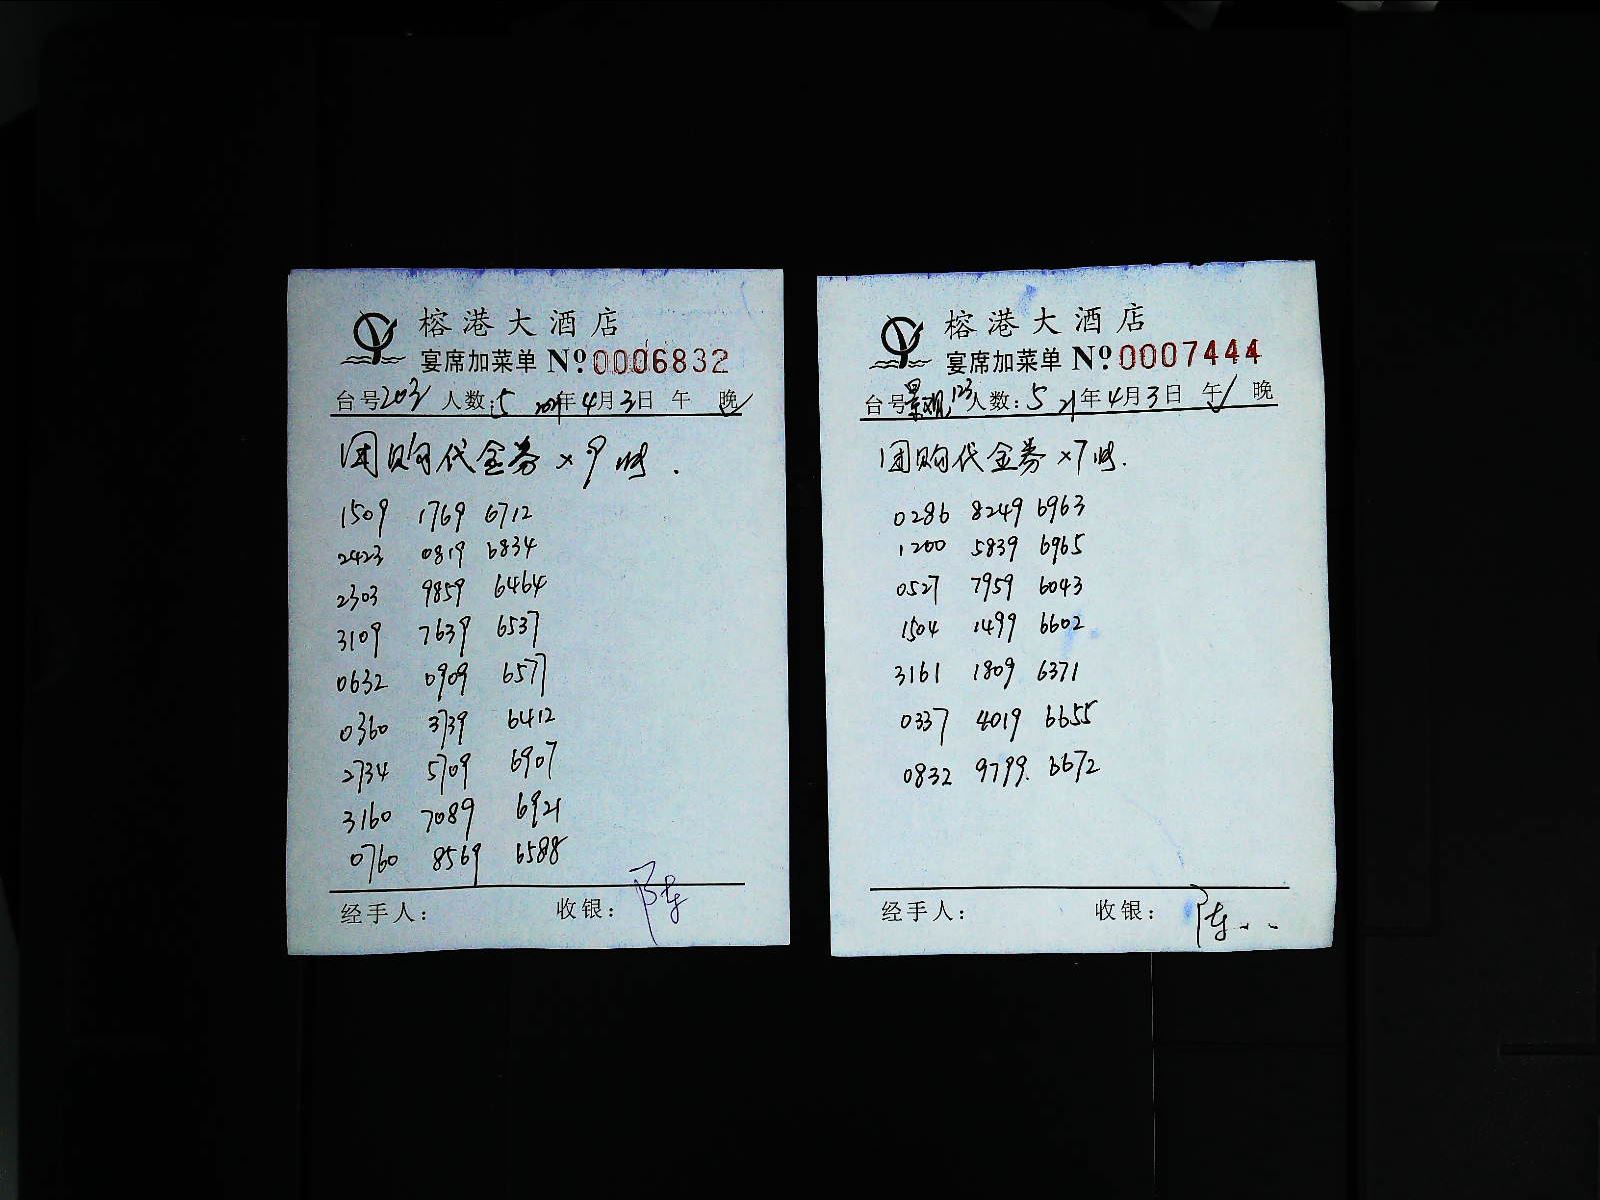 榕港大酒店
宴席加菜单 №0006832
台号203 人数:5 2021年4月3日 午 晚✓
团购代金券×9张.
1509 1769 6712
2423 0819 6834
2303 9859 6464
3109 7639 6537
0632 0909 6577
0360 3739 6412
2734 5709 6907
3160 7089 6921
0760 8569 6588
经手人: 收银: 陈
榕港大酒店
宴席加菜单 №0007444
台号景观123 人数:5 21年4月3日 午✓ 晚
团购代金券×7张.
0286 8249 6963
1200 5839 6965
0527 7959 6043
1504 1499 6602
3161 1809 6371
0337 4019 6655
0832 9799. 6672
经手人: 收银: 陈..